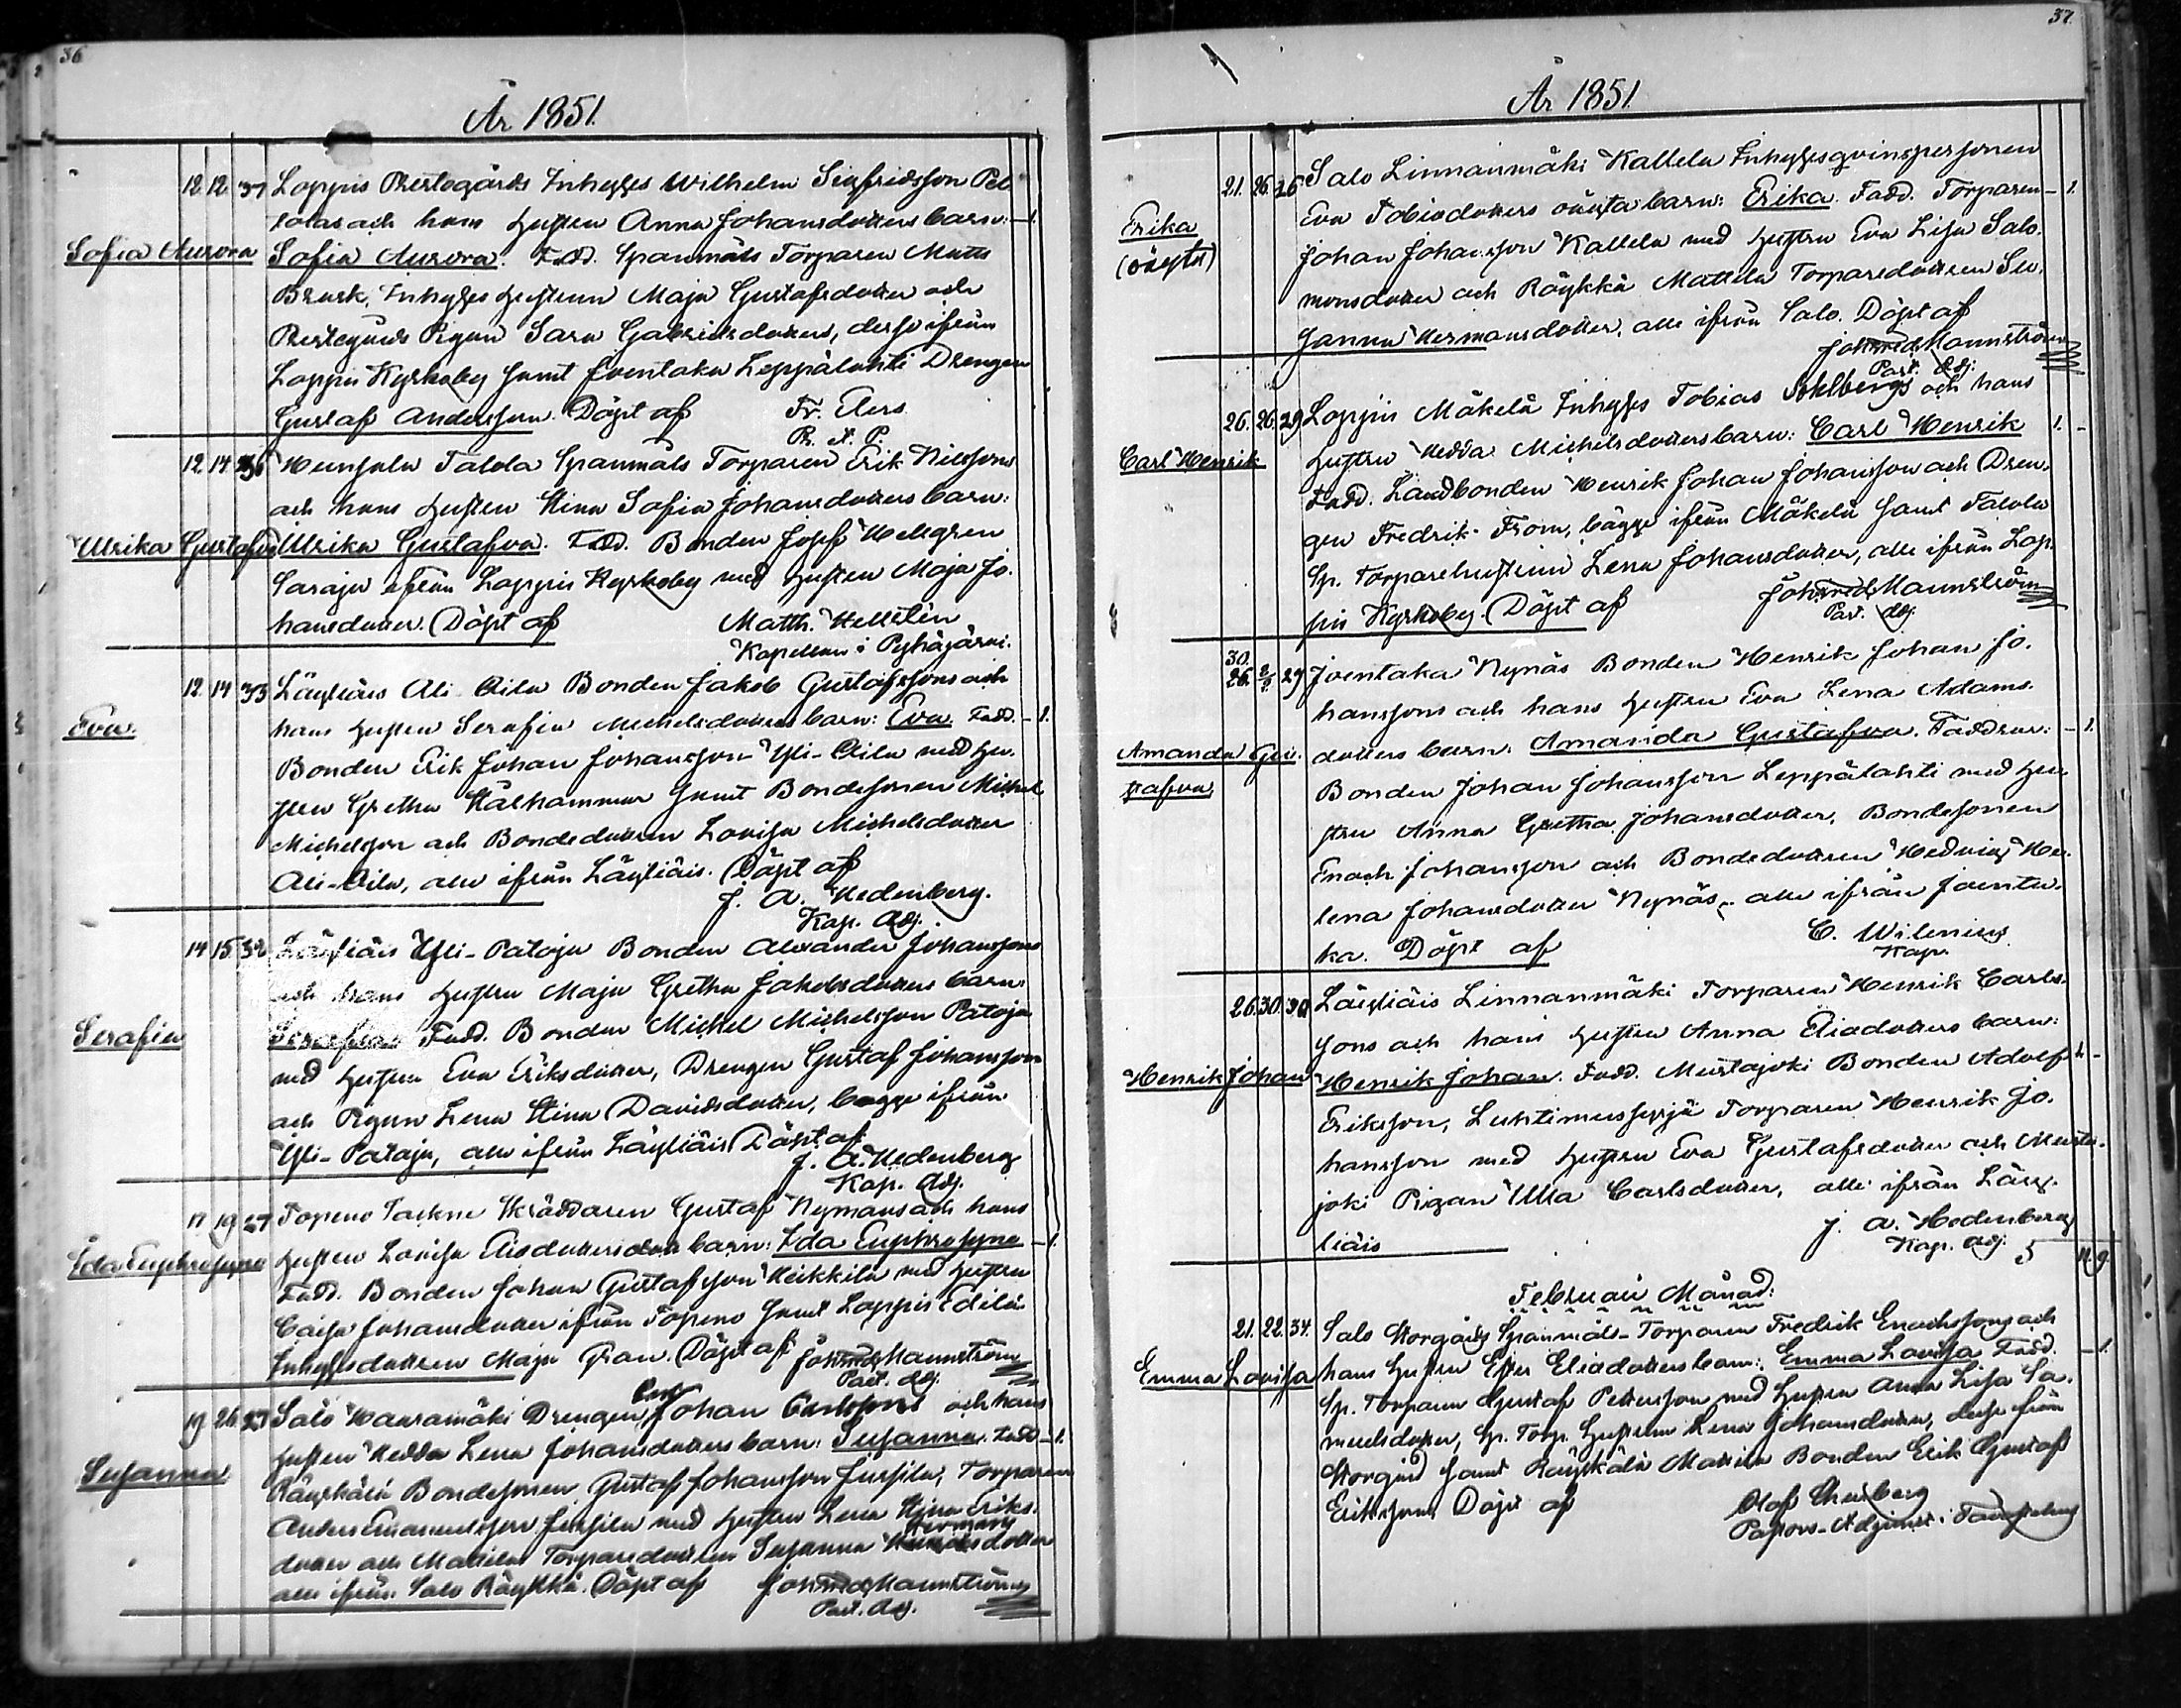 36
År 1851.
12. 12. 37 Loppis Prestegårds Inhyses Wilhelm Sigfridsson Pel
tolas och hans hustru Anna Johansdotters barn: — 1.
Sofia Aurora Sofia Aurora. Fadd. Spanmåls Torparen Matts
Brusk, Inhyses hustrun Maja Gustafsdotter och
Prestegårds Pigan Sara Gabrielsdotters, desse ifrån
Loppis Kyrkoby samt Joentaka Leppälahti Drengen
Gustaf Andersson. Döpt af Fr. Elers
Pr. o. P.
12 14 36 Hunsala Talola Spanmåls Torparen Erik Nilssons
och hans hustru Stina Sofia Johansdotters barn:
Ulrika Gustafva Ulrika Gustafva. Fadd. Bonden Josef Hellgren
Saraja ifrån Loppis Kyrkoby med hustru Maja Jo-
hansdotter. Döpt af Matth. Hellstén
Kapellan i Pyhäjärvi.
12 14 33 Läyliäis Ali-Eila Bonden Jakob Gustafssons och
hans hustru Serafia Michelsdotters barn: Eva. Fadd. — 1.
Eva. Bonden Erik Johan Johansson Yli-Eila med hu-
stru Gretha Stålhammar samt Bondesonen Michel
Michelsson och Bondedottren Lovisa Michelsdotter
Ali-Eila, alle ifrån Läyliäis. Döpt af
J. A. Hedenberg.
Kap. Adj.
14 15 32 Läyliäis Yli-Pataja Bonden Alexander Johanssons
och hans hustru Maja Gretha Jakobsdotters barn
Serafia Serafia Fadd. Bonden Michel Michelsson Pataja
med hustru Eva Eriksdotter, Drengen Gustaf Johansson
och Pigan Lena Stina Davidsdotter, bägge ifrån
Yli-Pataja, alle ifrån Läyliäis Döpt af
J. A. Hedenberg
Kap. Adj.
17 19 27 Topeno Skräddaren Gustaf Nymans och hans
Ida Euphrosyne hustru Lovisa Eliedotters barn: Ida Euphrosyne — 1.
Fadd. Bonden Johan Gustafsson Heikkilä med hustru
Caisa Johansdotter ifrån Topeno samt Loppis Edilä
Inhysesdottren Maja Gran. Döpt af Joh. Mannström
Past. Adj.
19 26 27 Salo Haaramäki Drengen Johan Carlssons och hans
hustru Hedda Lena Johansdotters barn: Susanna. Fadd — 1.
Susanna Räyskälä Bondesonen Gustaf Johansson Jussila, Torparen
Anders Emanuelsson Jussila med hustru Lena Stina Eriks-
Hermans
dotter och Mattila Torparedottren Susanna dotter
alle ifrån Salo Räykkä. Döpt af Joh. Mannström
Past. Adj.
37.
År 1851.
21. 26. 26 Salo Linnanmäki Kallela Inhysesqvinspersonen
Erika Eva Tobiedotters oäkta barn: Erika. Fadd. Torparen — 1.
(oäkta) Johan Johansson Kallela med hustru Eva Lisa Salo-
monsdotter och Räykkä Mattila Torparedottren Su-
sanna Hermansdotter, alle ifrån Salo. Döpt af
Joh. Mannström
Past. Adj.
26. 26. 29 Loppis Mäkelä Inhyses Tobias Sohlbergs och hans
Carl Henrik hustru Hedda Michelsdotters barn: Carl Henrik 1. —
Fadd. Landbonden Henrik Johan Johansson och Dren-
gen Fredrik From, bägge ifrån Mäkelä samt Talola
Sp. Torparehustrun Lena Johansdotter, alle ifrån Lop-
pis Kyrkoby. Döpt af Joh. Mannström
Past. Adj.
30.
26. 2/2 29 Joentaka Nynäs Bonden Henrik Johan Jo-
hanssons och hans hustru Eva Lena Adams-
Amanda Gus- dotters barn: Amanda Gustafva. Faddrar: — 1.
tafva Bonden Johan Johansson Leppälahti med hu-
stru Anna Gretha Johansdotter, Bondesonen
Enoch Johansson och Bondedottren Hedvig He-
lena Johansdotter Nynäs, alle ifrån Joenta-
ka. Döpt af C. Wilenius
Kap.
26 30. 30 Läyliäis Linnanmäki Torparen Henrik Carls-
sons och hans hustru Anna Eliedotters barn:
Henrik Johan Henrik Johan. Fadd. Mustajoki Bonden Adolf 1. —
Eriksson, Torparen Henrik Jo-
hansson med hustru Eva Gustafsdotter och Musta-
joki Pigan Ulla Carlsdotter, alle ifrån Läyl-
liäis J. A. Hedenberg
Kap. Adj. 11. 9.
Februari Månad:
21. 22. 34. Salo Storgårds Spanmåls-Torparen Fredrik Enochssons och
Emma Lovisa hans hustru Eliedotters barn: Emma Lovisa Fadd. — 1.
Sp. Torparen Gustaf Pettersson med hustru Anna Lisa Sa-
muelsdotter, Sp. Torp. hustrun Johansdotter, desse från
Storgård samt Räyskälä Mattila Bonden Erik Gustaf
Eriksson. Döpt af Olof
Pastors-Adjunct i